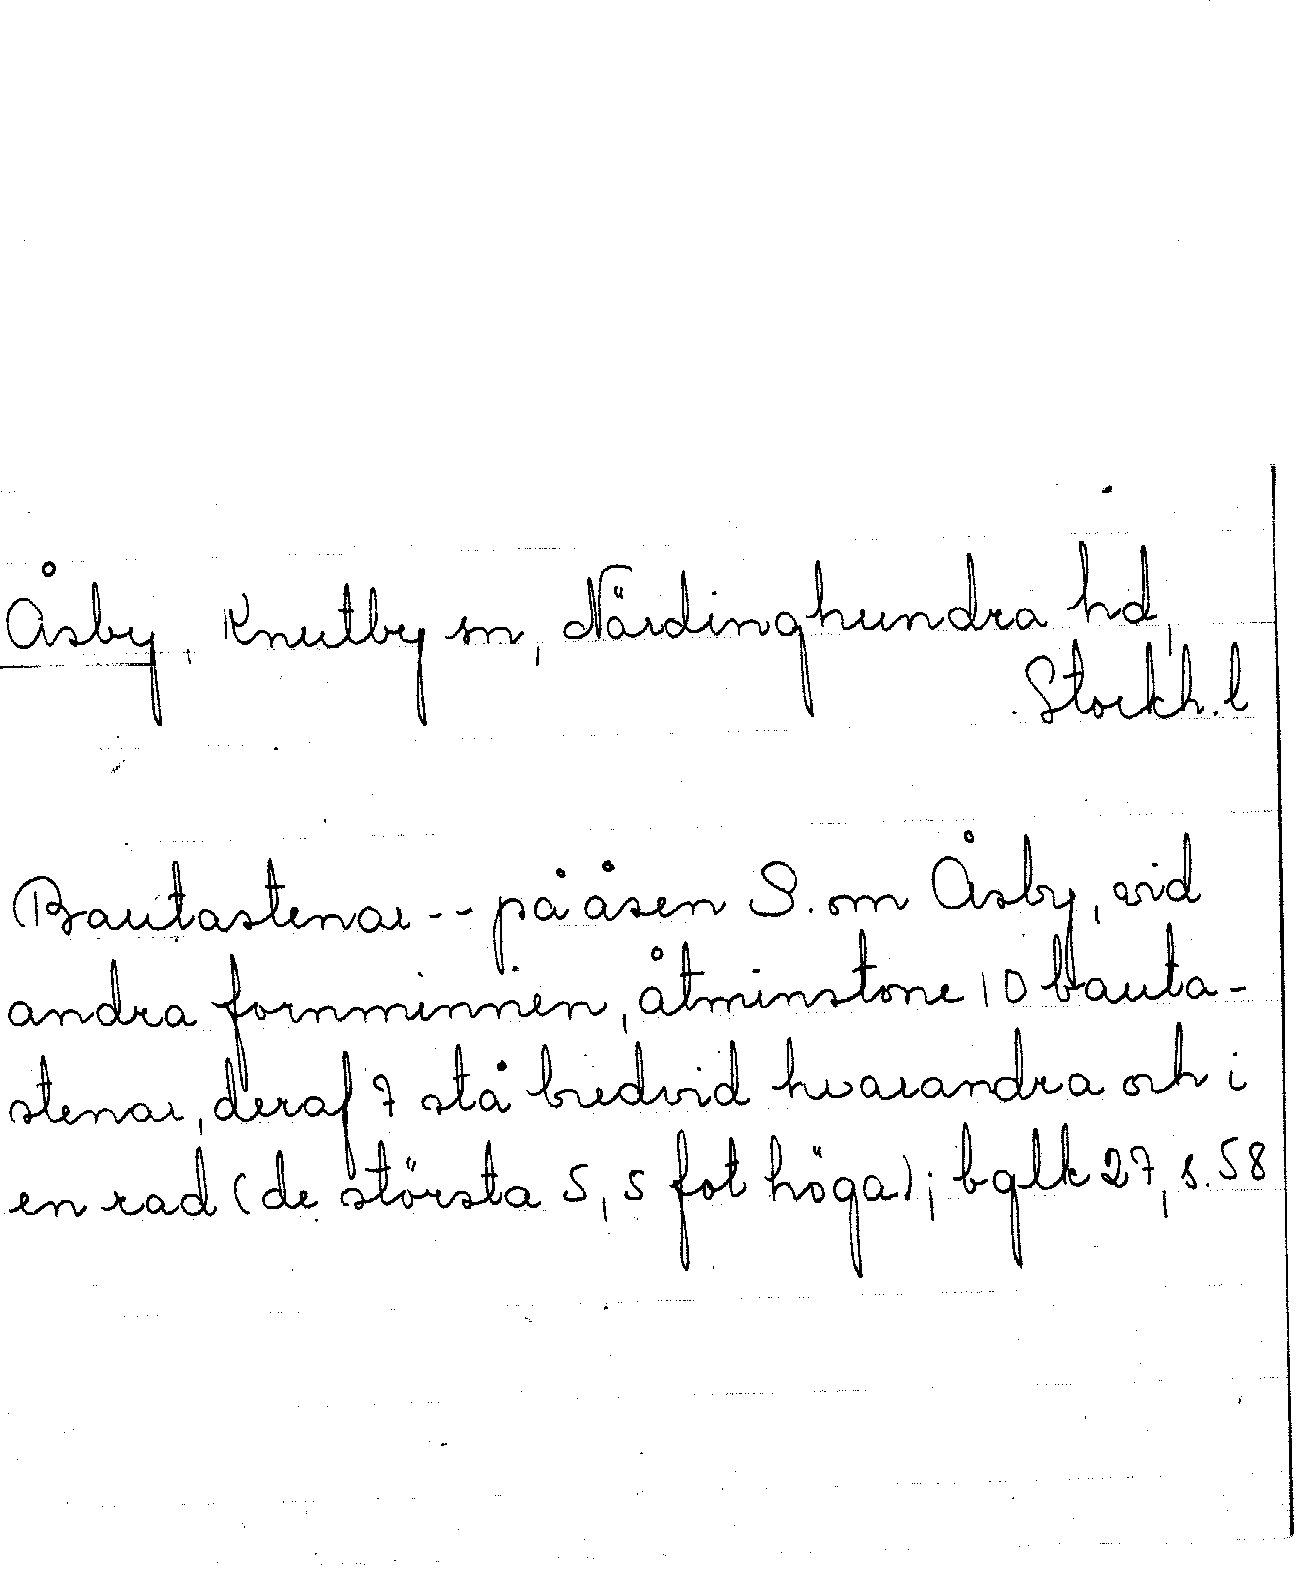 Åsby, Knutby sn, Närdinghundra hd,
Stockh. l
Bautastenar -- på åsen S. om Åsby, vid
andra fornminnen, åtminstone 10 bauta-
stenar, deraf 7 stå bredvid hvarandra och i
en rad (de största 5,5 fot höga); bglk 27, s. 58